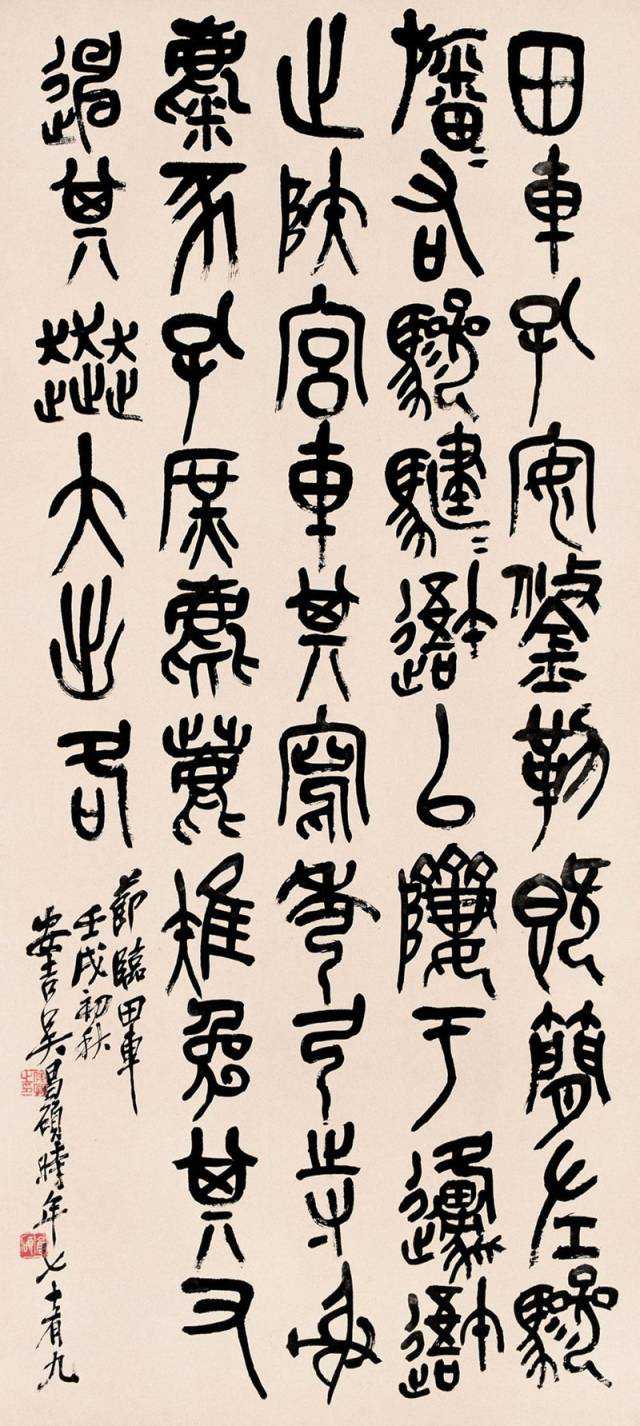 田車孔安鋚勒既簡左驂
旛=右驂騝=䢩以隮于邍䢩
止陝宮車其寫秀弓寺射
麋豕孔庶麀鹿雉兔其又
其奔大出各
節臨田車
壬戌初秋
安吉吳昌碩時年七十有九